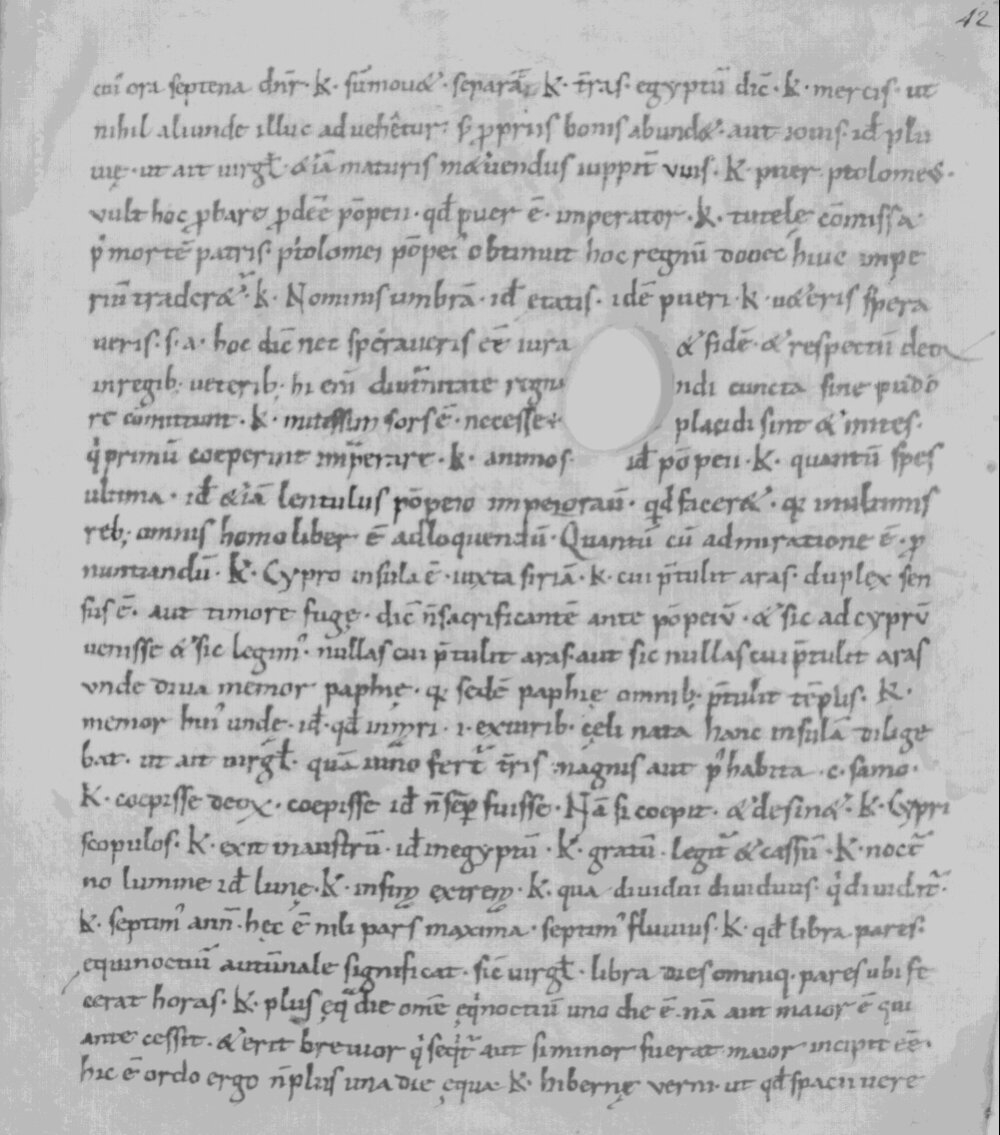 42
cui ora septena dnr̄ · k · sūmouet · separat̄ · k · t̄ras · egyptū dic̄ · k · mercis · ut
nihil aliunde illuc aduehêtur · s; ꝓpriis bonis abundet · aut iouis · id̄ plu
uię · ut ait uirgł · & iā maturis metuendus iuppit̄ uuis · k · puer ptolomeꝰ ·
uult hoc ꝓbare ꝓdeē pōpeii · qd̄ puer ē · imperator · k · tutelę cōmissa
p̄ mortē patris · ptolomei pōpeiꝰ obtinuit hoc regnū donec huic impe
riū traderet · k · Nominis umbrā · id̄ etatis · idē pueri · k · ueteris sp̄era
ueris · s · a · hoc dic̄ nec speraueris eē iura & fidē · & respectū deoꝝ
in regib; ueterib; hi eni diuturnitate regnandi cuncta sine pudo
re cōmittunt · k · mitissima sors ē · necesse ÷ placidi sint & mites ·
q̍ primū coeperint imperare · k · animos · id̄ pōpeii · k · quantū spes
ultima · id̄ & iā lentulus pōpeio impeiorauit̄ · qd̄ faceret · qr in ultimis
reb; omnis homo liber ē adloquendū · Quantū cū admiratione ē · ꝓ
nuntiandū · k · Cypro insula ē · iuxta siriā · k · cui p̄tulit aras · duplex sen
sus ē · aut timore fugę · dic̄ n̄ sacrificantē ante pōpeiū · & sic ad cyprū
uenisse & sic legimꝰ · nullas cui p̄tulit aras · aut sic nullas cui p̄tulit aras
unde diua memor paphię · qr sedē paphię omnib; p̄tulit tēplis · k ·
memor huiꝰ unde · id̄ · qd̄ in mari · i · ex uirib · cęli nata hanc insulā dilige
bat · ut ait uirgł · quā iuno fert̄ t̄ris magis aut p̍habita · c · samo ·
k · coepisse deoꝝ · coepisse id̄ n̄ semp̄ fuisse · Nā si coepit · & desinet · k · Cypri
scopulos · k · exit in austrū · id̄ in egyptū · k · gratū · legit̄ & cassiū · k · noct̄
no lumine id̄ lunę · k · infimę extremę · k · qua diuidui diuiduus · q̍ diuidit̄ ·
k · septimꝰ ann̄ · hęc ē nili pars maxima · septimꝰ fluuius · k · qd̄ libra pares ·
equinoctiū autūnale significat · sic̄ uirgł · libra dies omniq · pares ubi fe
cerat horas · k · plus ęqua die om̄e ęq̍noctiū uno die ē · nā aut maior ē qui
ante cessit · & erit breuior q̍ seq̍t̄ aut si minor fuerat maior incipit eē ·
hic ē ordo ergo n̄ plus una die ęqua k · hibernę uerni · ut qd̄ spacii uere